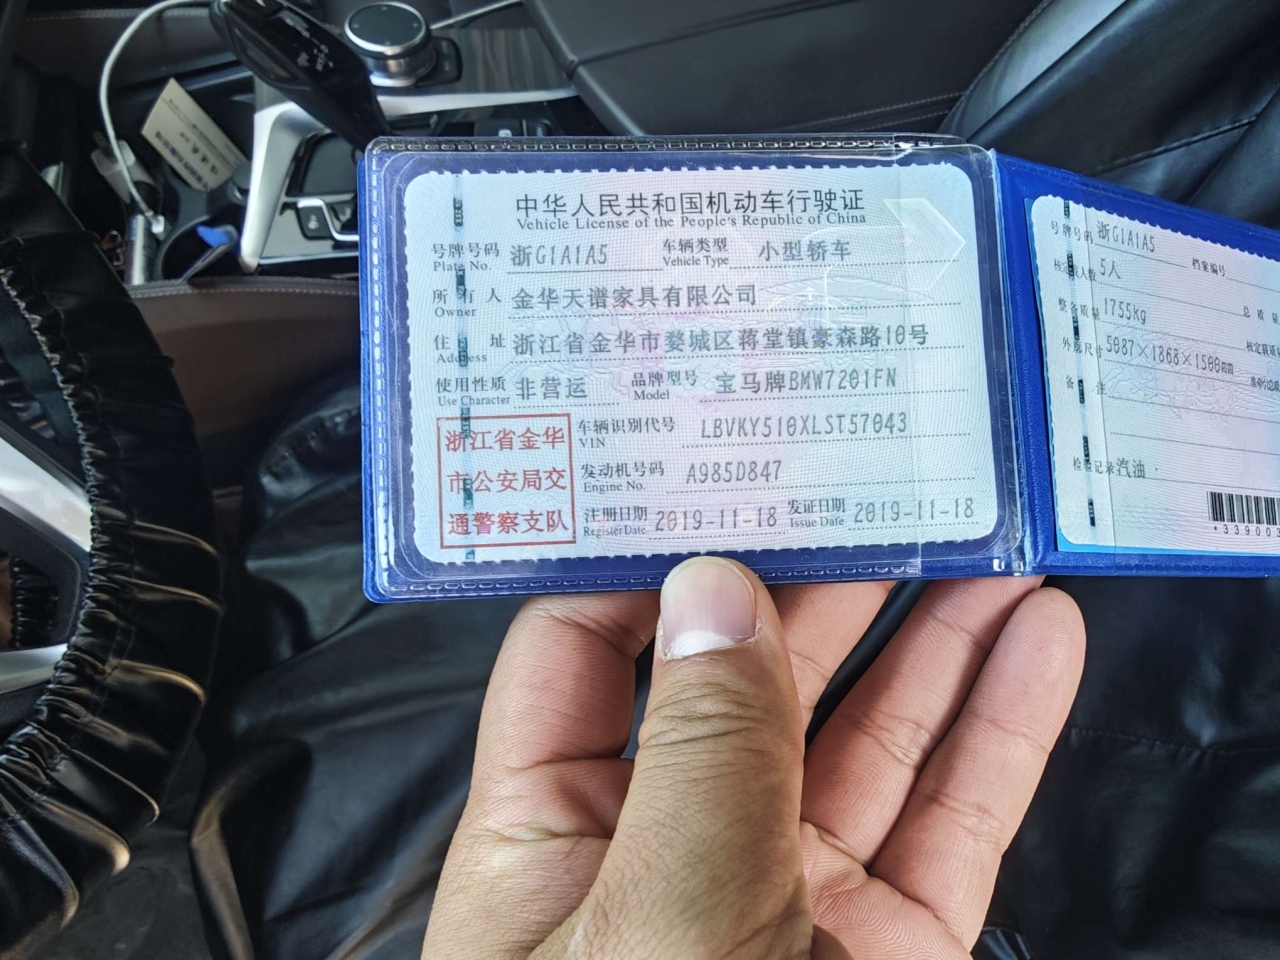 中华人民共和国机动车行驶证
Vehicle License of the People's Republic of China
号牌号码 浙G1A1A5 车辆类型 小型轿车
Plate No. Vehicle Type
所有人 金华天谱家具有限公司
Owner
住址 浙江省金华市婺城区蒋堂镇豪森路10号
Address
使用性质 非营运 品牌型号 宝马牌BMW7201FN
Use Character Model
浙江省金华
市公安局交
通警察支队
车辆识别代号 LBVKY510XLST57043
VIN
发动机号码 A985D847
Engine No.
注册日期 2019-11-18 发证日期 2019-11-18
Register Date Issue Date
号牌号码 浙G1A1A5 档案编号
核定载人数 5人
整备质量 1755kg 总质量
外廓尺寸 5087×1868×1500mm 核定载质
备注
检验记录 汽油
*339003